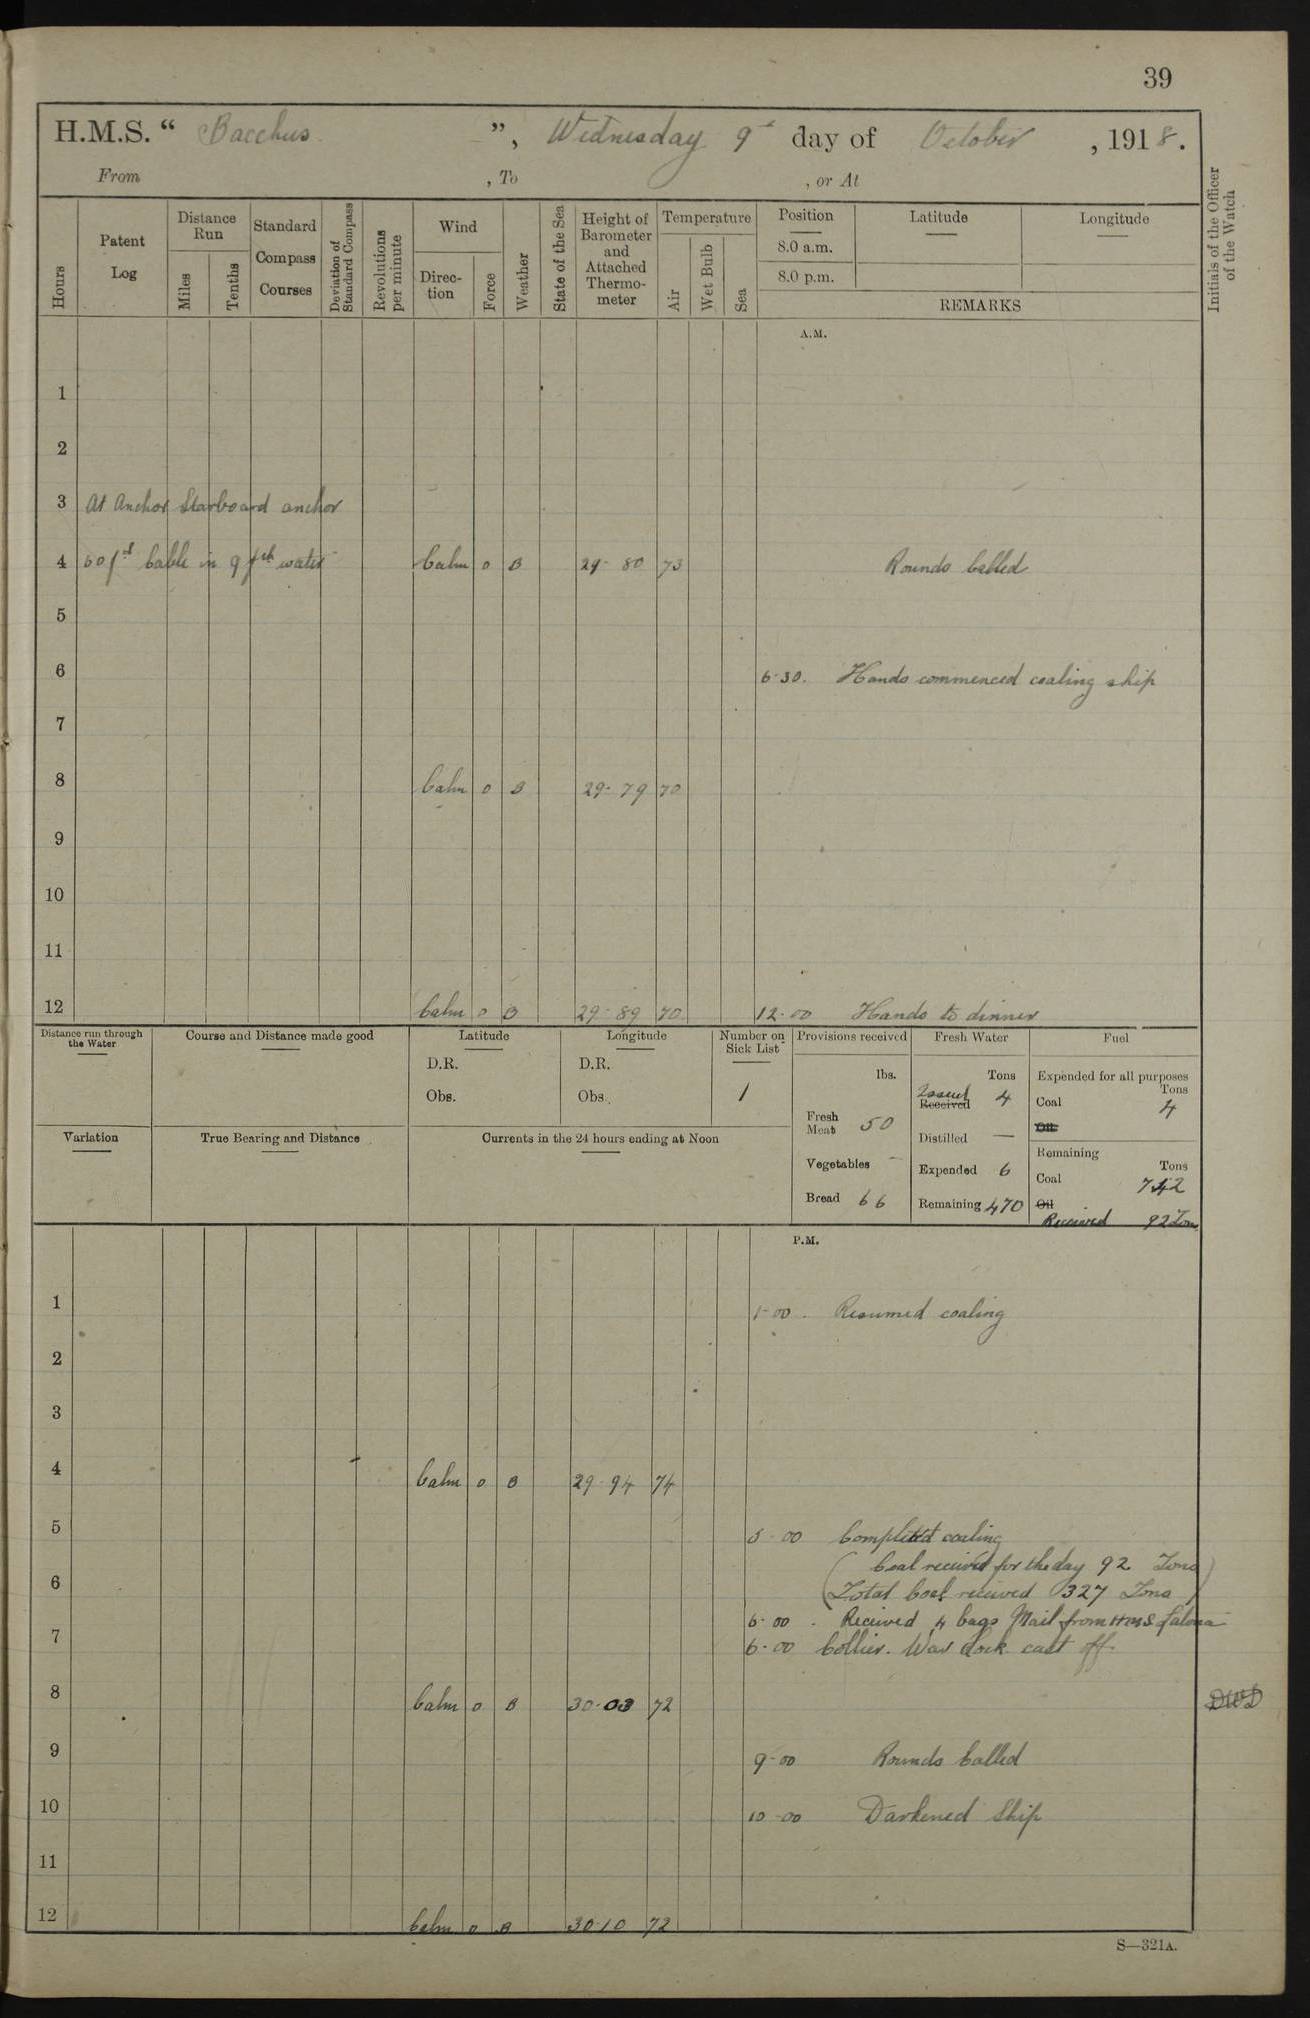 39
H.M.S. “ Bacchus ”, Wednesday 9th day of October , 1918.
From , To , or At
Hours
Patent Log
Distance Run
Miles
Tenths
Standard Compass Courses
Deviation of Standard Compass
Revolutions per minute
Wind
Direction
Force
Weather
State of the Sea
Height of Barometer and Attached Thermometer
Temperature
Air
Wet Bulb
Sea
Position Latitude Longitude
8.0 a.m.
8.0 p.m.
REMARKS
Initials of the Officer of the Watch
A.M.
1
2
3 At Anchor Starboard anchor
4 60 fs Cable in 9 fth water Calm 0 B 29-80 73 Rounds Called
5
6 6-30. Hands commenced coaling ship
7
8 Calm 0 B 29-79 70
9
10
11
12 Calm 0 B 29-89 70 12-00 Hands to dinner
Distance run through the Water
Course and Distance made good
Latitude
D.R.
Obs.
Longitude
D.R.
Obs.
Number on Sick List
1
Variation
True Bearing and Distance
Currents in the 24 hours ending at Noon
Provisions received
lbs.
Fresh Meat 50
Vegetables –
Bread 66
Fresh Water
Tons
Issued
Received 4
Distilled —
Expended 6
Remaining 470
Fuel
Expended for all purposes
Tons
Coal 4
Oil
Remaining
Tons
Coal 742
Oil
Received 92 Tons
P.M.
1 1-00. Resumed coaling
2
3
4 Calm 0 B 29-94 74
5 5-00 Completed coaling
(Coal received for the day 92 Tons)
6 (Total Coal received 327 Tons)
6-00. Received 4 bags Mail from HMS
7 6-00 Collier. War Cock cast off.
8 Calm 0 B 30-03 72
9 9-00 Rounds Called
10 10-00 Darkened Ship
11
12 Calm 0 B 30-10 72
S—321A.